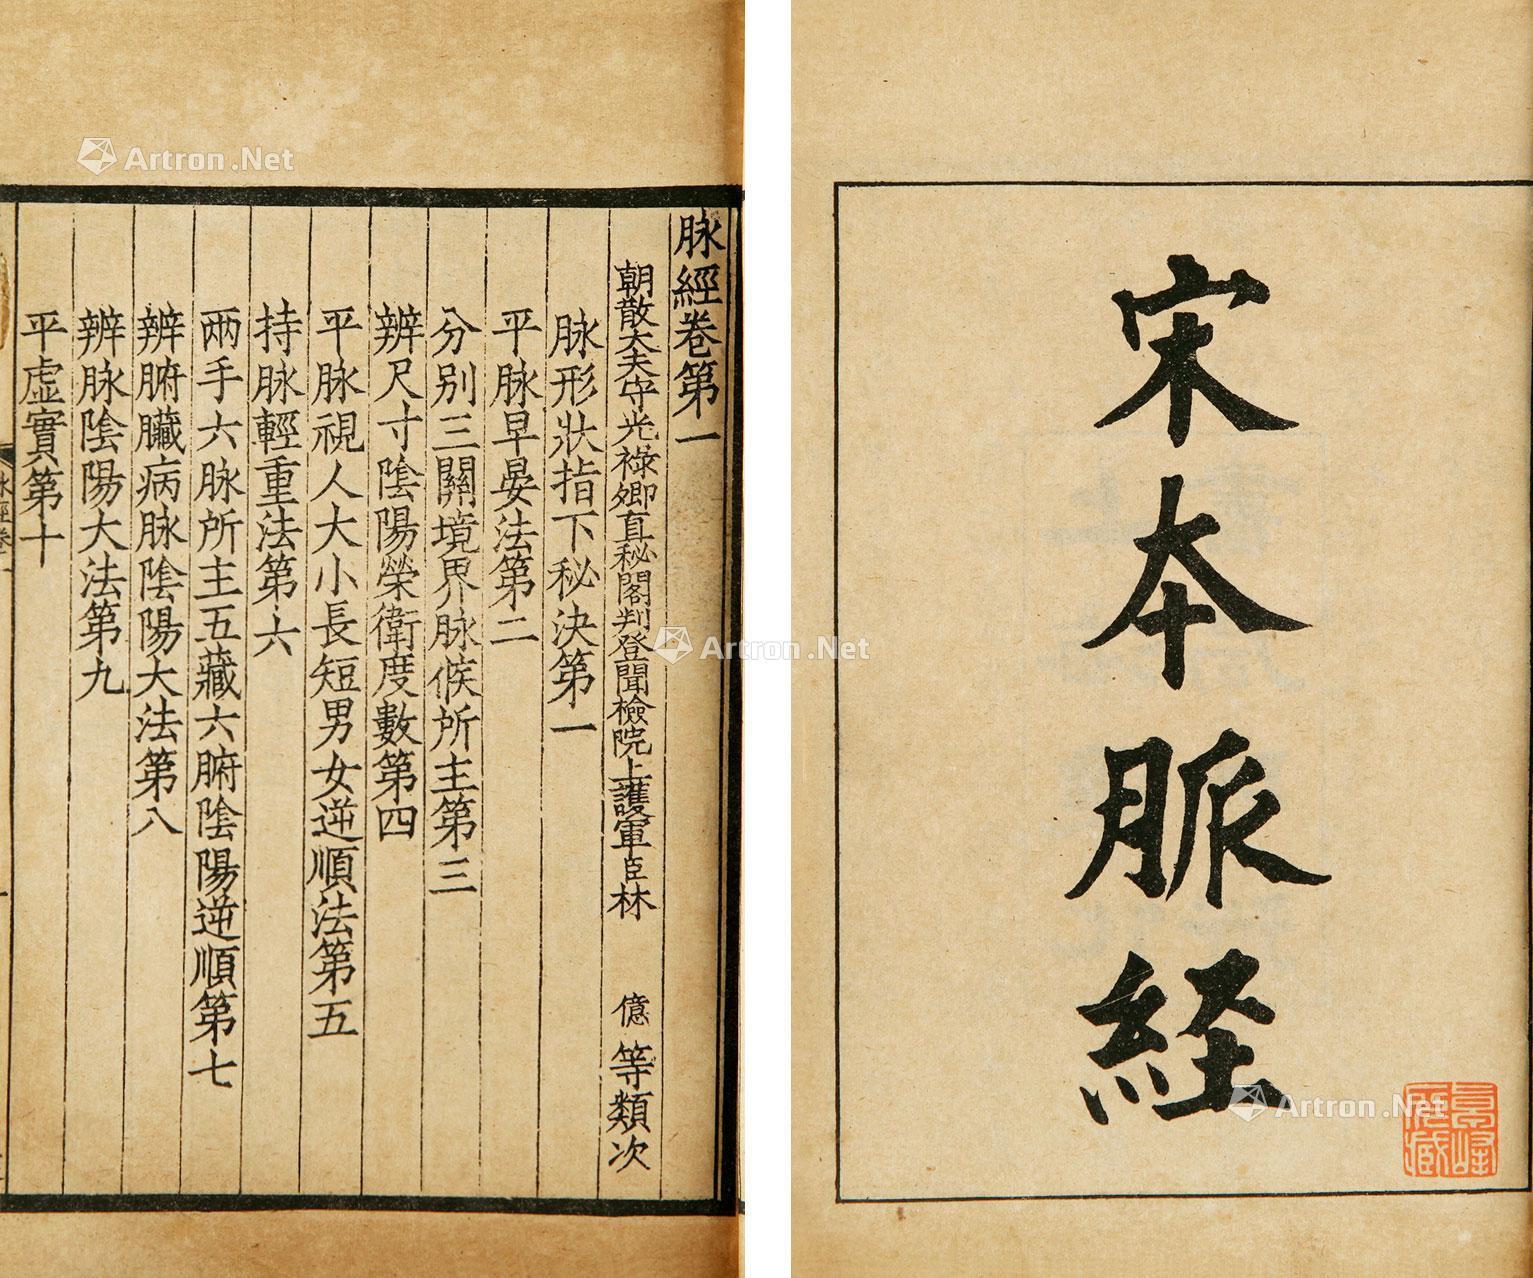 宋本脈経
脉經卷第一
朝散大夫守光祿卿直秘閣判登聞檢院上護軍臣林億等類次
脉形狀指下秘決第一
平脉早晏法第二
分別三關境界脉候所主第三
辨尺寸陰陽榮衛度數第四
平脉視人大小長短男女逆順法第五
持脉輕重法第六
兩手六脉所主五藏六腑陰陽逆順第七
辨腑臟病脉陰陽大法第八
辨脉陰陽大法第九
平虛實第十
Artron.Net
Artron.Net
Artron.Net